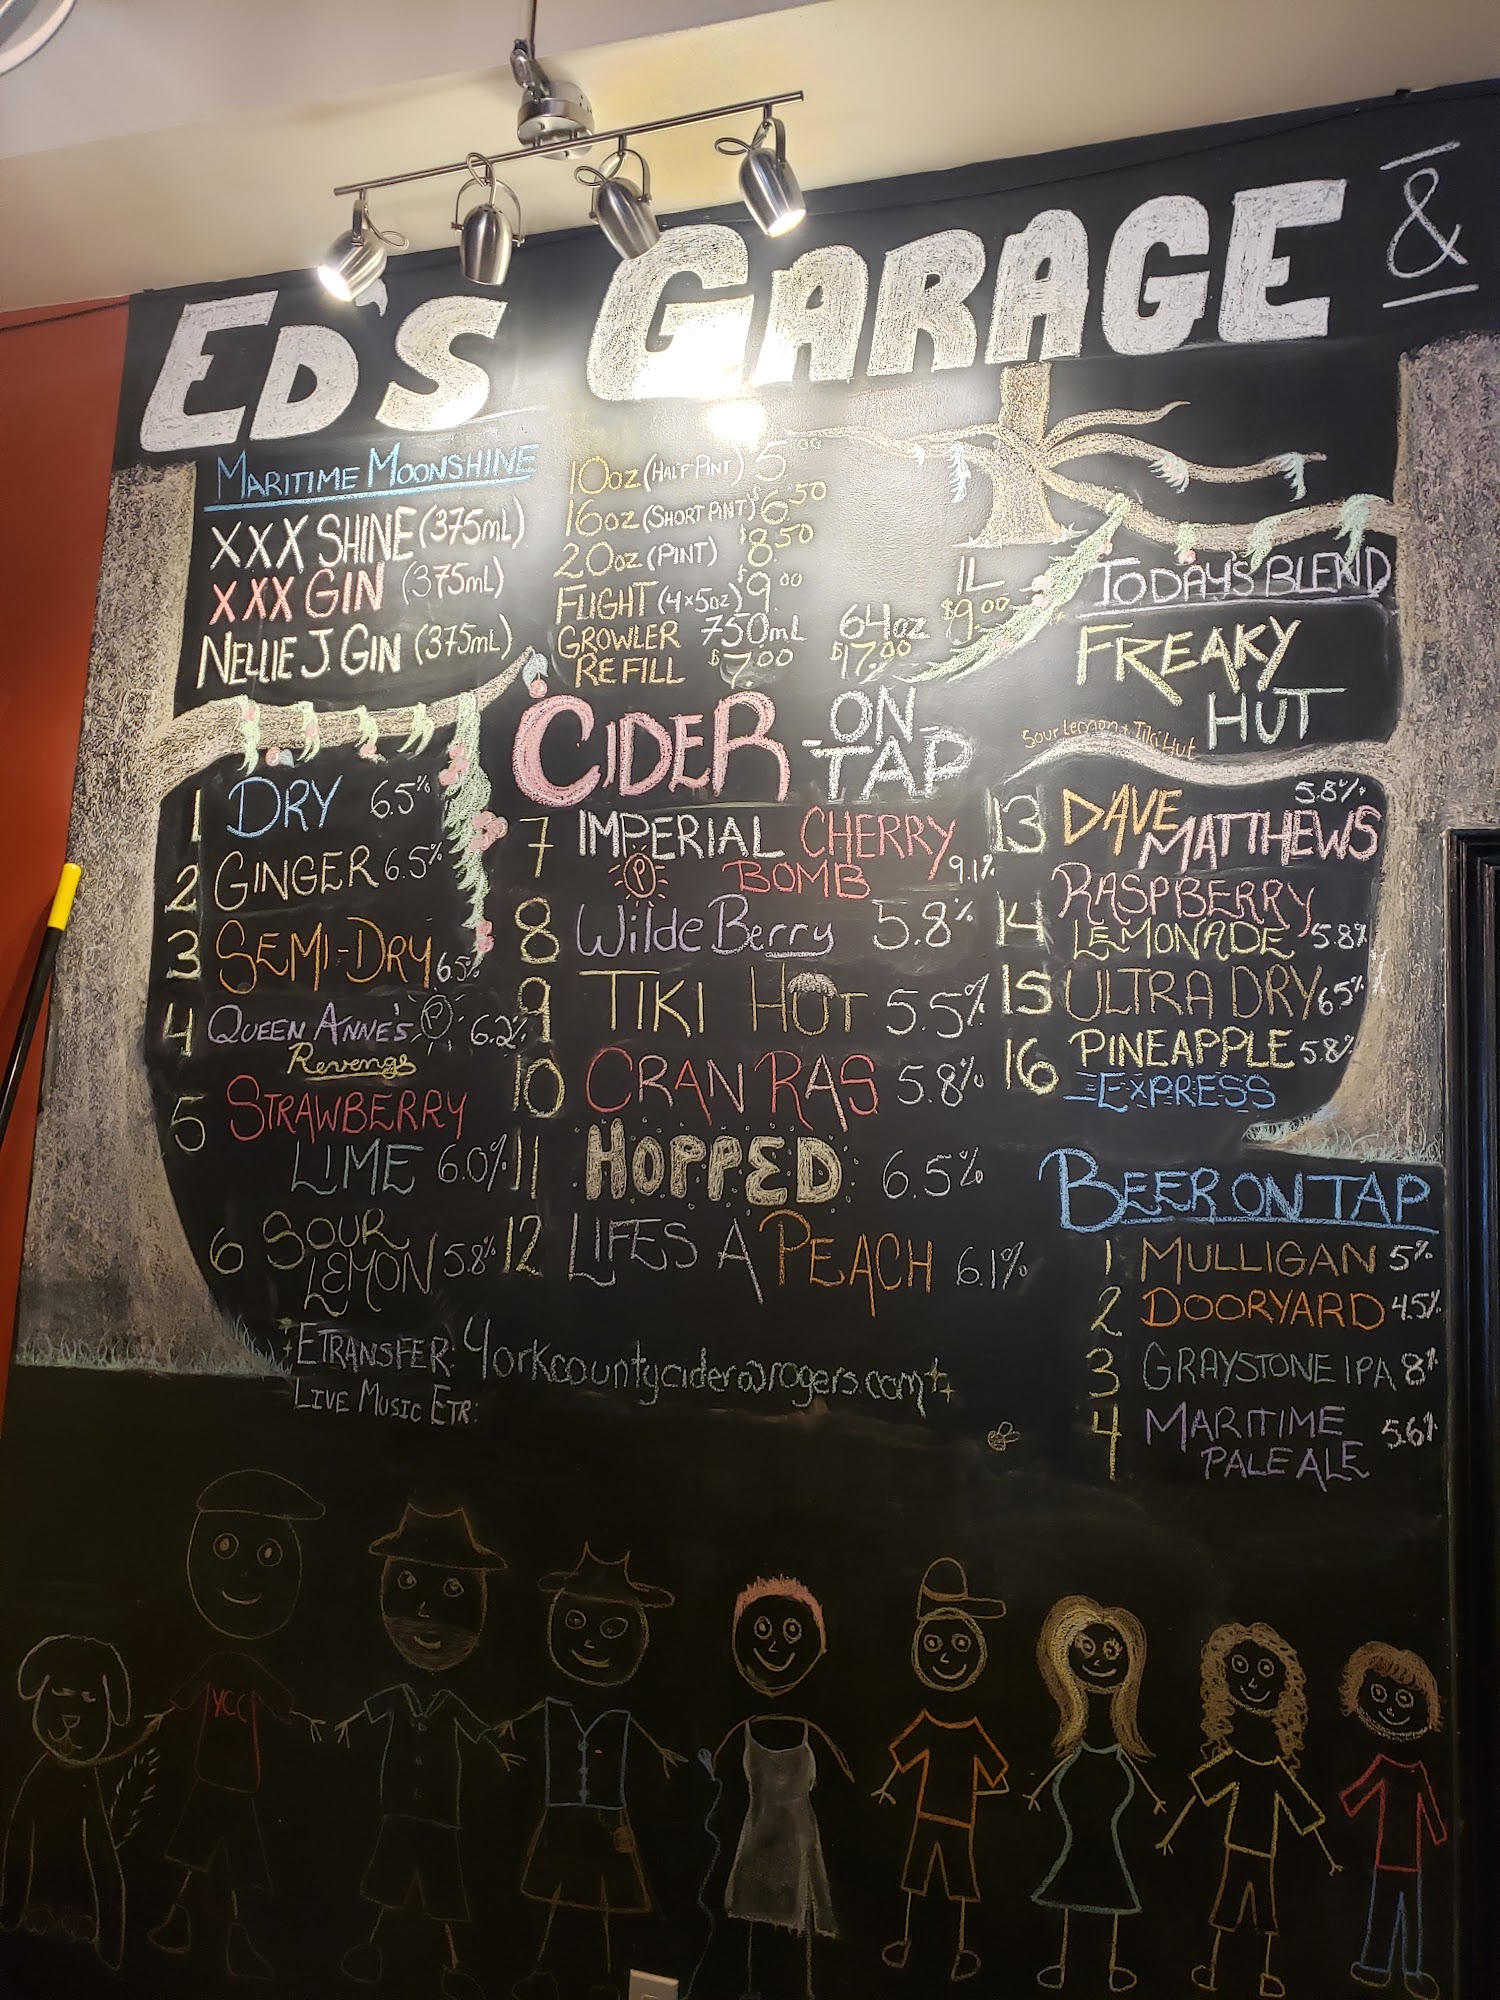 ED'S GARAGE &
MARITIME MOONSHINE
XXX SHINE (375mL)
XXX GIN (375mL)
NELLIE J. GIN (375mL)
10oz (HALF PINT) 5.00
16oz (SHORT PINT) $6.50
20oz (PINT) $8.50
FLIGHT (4x5oz) $9.00
GROWLER 750mL 64oz 1L
REFILL $7.00 $17.00 $9.00
TODAY'S BLEND
FREAKY
HUT
Sour Lemon + Tiki Hut
CIDER ON
TAP
1 DRY 6.5%
2 GINGER 6.5%
3 SEMI-DRY 6.5%
4 QUEEN ANNE'S P 6.2%
Revenge
5 STRAWBERRY
LIME 6.0%
6 SOUR
LEMON 5.8%
7 IMPERIAL CHERRY
P BOMB 9.1%
8 Wilde Berry 5.8%
9 TIKI HUT 5.5%
10 CRAN RAS 5.8%
11 HOPPED 6.5%
12 LIFES A PEACH 6.1%
13 DAVE 5.8%
MATTHEWS
14 RASPBERRY
LEMONADE 5.8%
15 ULTRA DRY 6.5%
16 PINEAPPLE 5.8%
EXPRESS
BEER ON TAP
1 MULLIGAN 5%
2 DOORYARD 4.5%
3 GRAYSTONE IPA 8%
4 MARITIME 5.6%
PALE ALE
ETRANSFER: Yorkcountycider@rogers.com
LIVE MUSIC ETR:
YCC